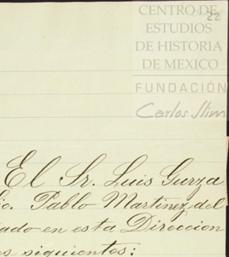 CENTRO DE
22
ESTUDIOS
DE HISTORIA
DE MEXICO
FUNDACIÓN
Carlos Slim
El Sr. Luis Gurza
ic. Pablo Martinez del
ado en esta Direccion
os siguientes: